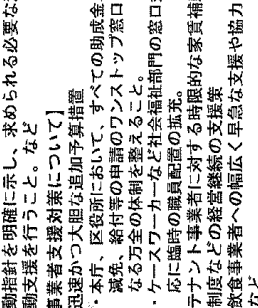 動指針を明確に示し、求められる必要な
動支援を行うこと。など
事業者支援対策について】
迅速かつ大胆な追加予算措置
・本庁、区役所において、すべての助成金
減免、給付等の申請のワンストップ窓口
なる万全の体制を整えること。
・ケースワーカーなど社会福祉部門の窓口
応に臨時の職員配置の拡充。
テナント事業者に対する時限的な家賃補
制度などの経営継続の支援策
飲食事業者への幅広く早急な支援や協力
など